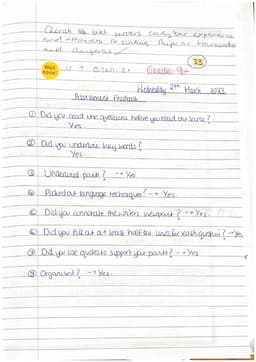 Overall the both writers convey their experience
and attitudes of finding things as traumatic
and dangerous
33
Well done!
12 + Skill 2+ Grade 9-
Wednesday 29th March 2023
Assessment Feedback
① Did you read the questions before you read our source?
Yes.
② Did you underline key words?
Yes.
③ Understand parts? → Yes
④ Picked out language techniques? → Yes.
⑤ Did you annotate the writers viewpoint? → Yes.
⑥ Did you fill out at least half the lines for each question? → Yes
⑦ Did you use quotes to support your points? → Yes.
⑧ Organised? → Yes.